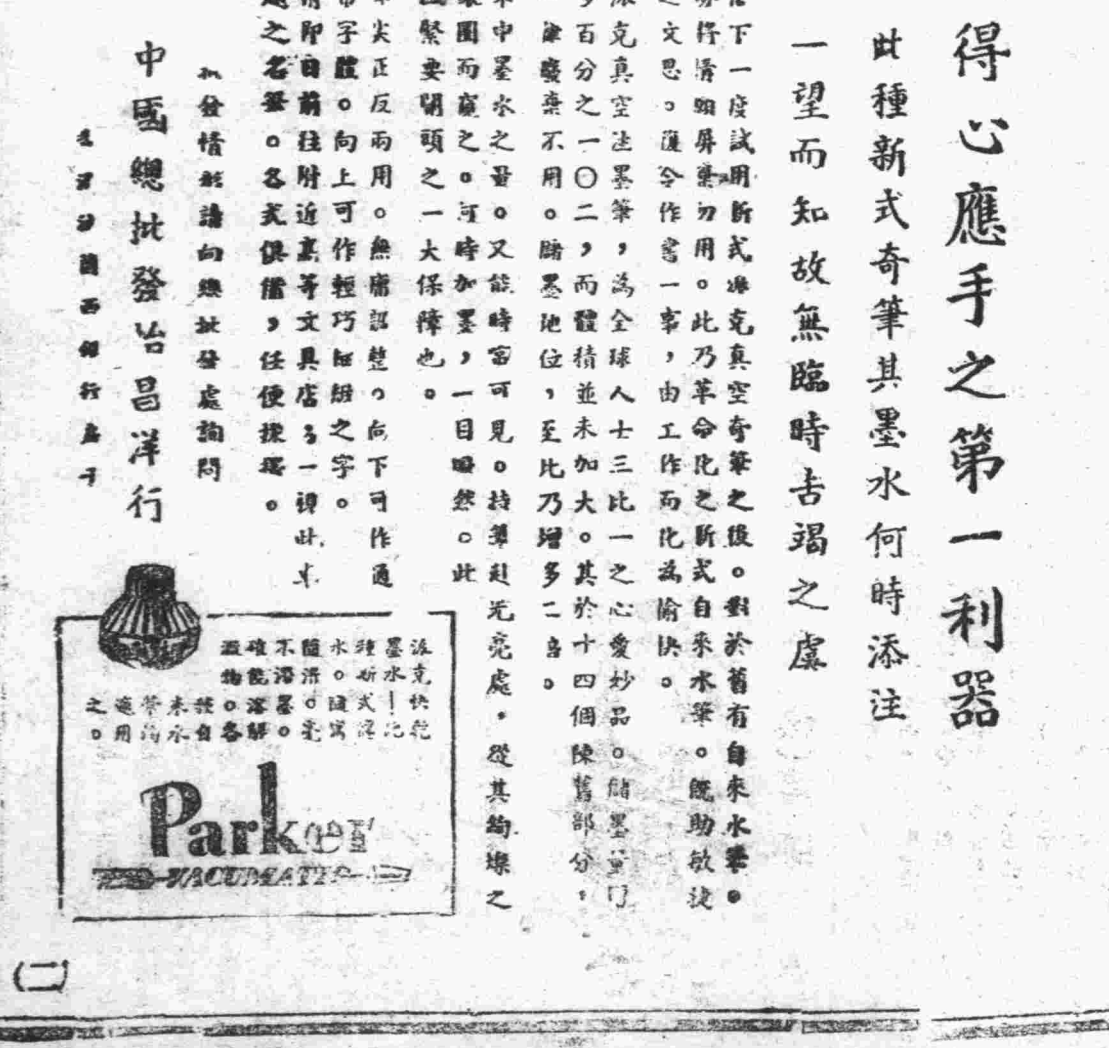 得心應手之第一利器
此種新式奇筆其墨水何時添注
一望而知故無臨時告竭之虞
下一度試用新式派克真空奇筆之後。對於舊有自來水筆。
將情願屏棄勿用。此乃革命化之新式自來水筆。既助敏捷
之文思。復令作書一事,由工作而化為愉快。
派克真空速墨筆,為全球人士三比一之心愛妙品。儲墨量
百分之一〇二,而體積並未加大。其於十四個陳舊部分,
廢棄不用。儲墨地位,至比乃增多二倍。
中墨水之量。又能時寓可見。持筆對光亮處,從其絢燦之
圈而窺之。可時加墨,一目瞭然。此
緊要關頭之一大保障也。
尖正反兩用。無庸調整。向下可作通
常字體。向上可作輕巧細紐之字。
請即日前往附近高等文具店,一視此卓
越之名筆。各式俱備,任便揀選。
批發情形請向總批發處詢問
中國總批發怡昌洋行
派克快乾
墨水—此
種新式潔
水。隨寫
隨涸。毫
不滯墨。
確能溶解
澱物。各
種自
來水
筆均
適用
之。
Parker
VACUMATIC
(二)